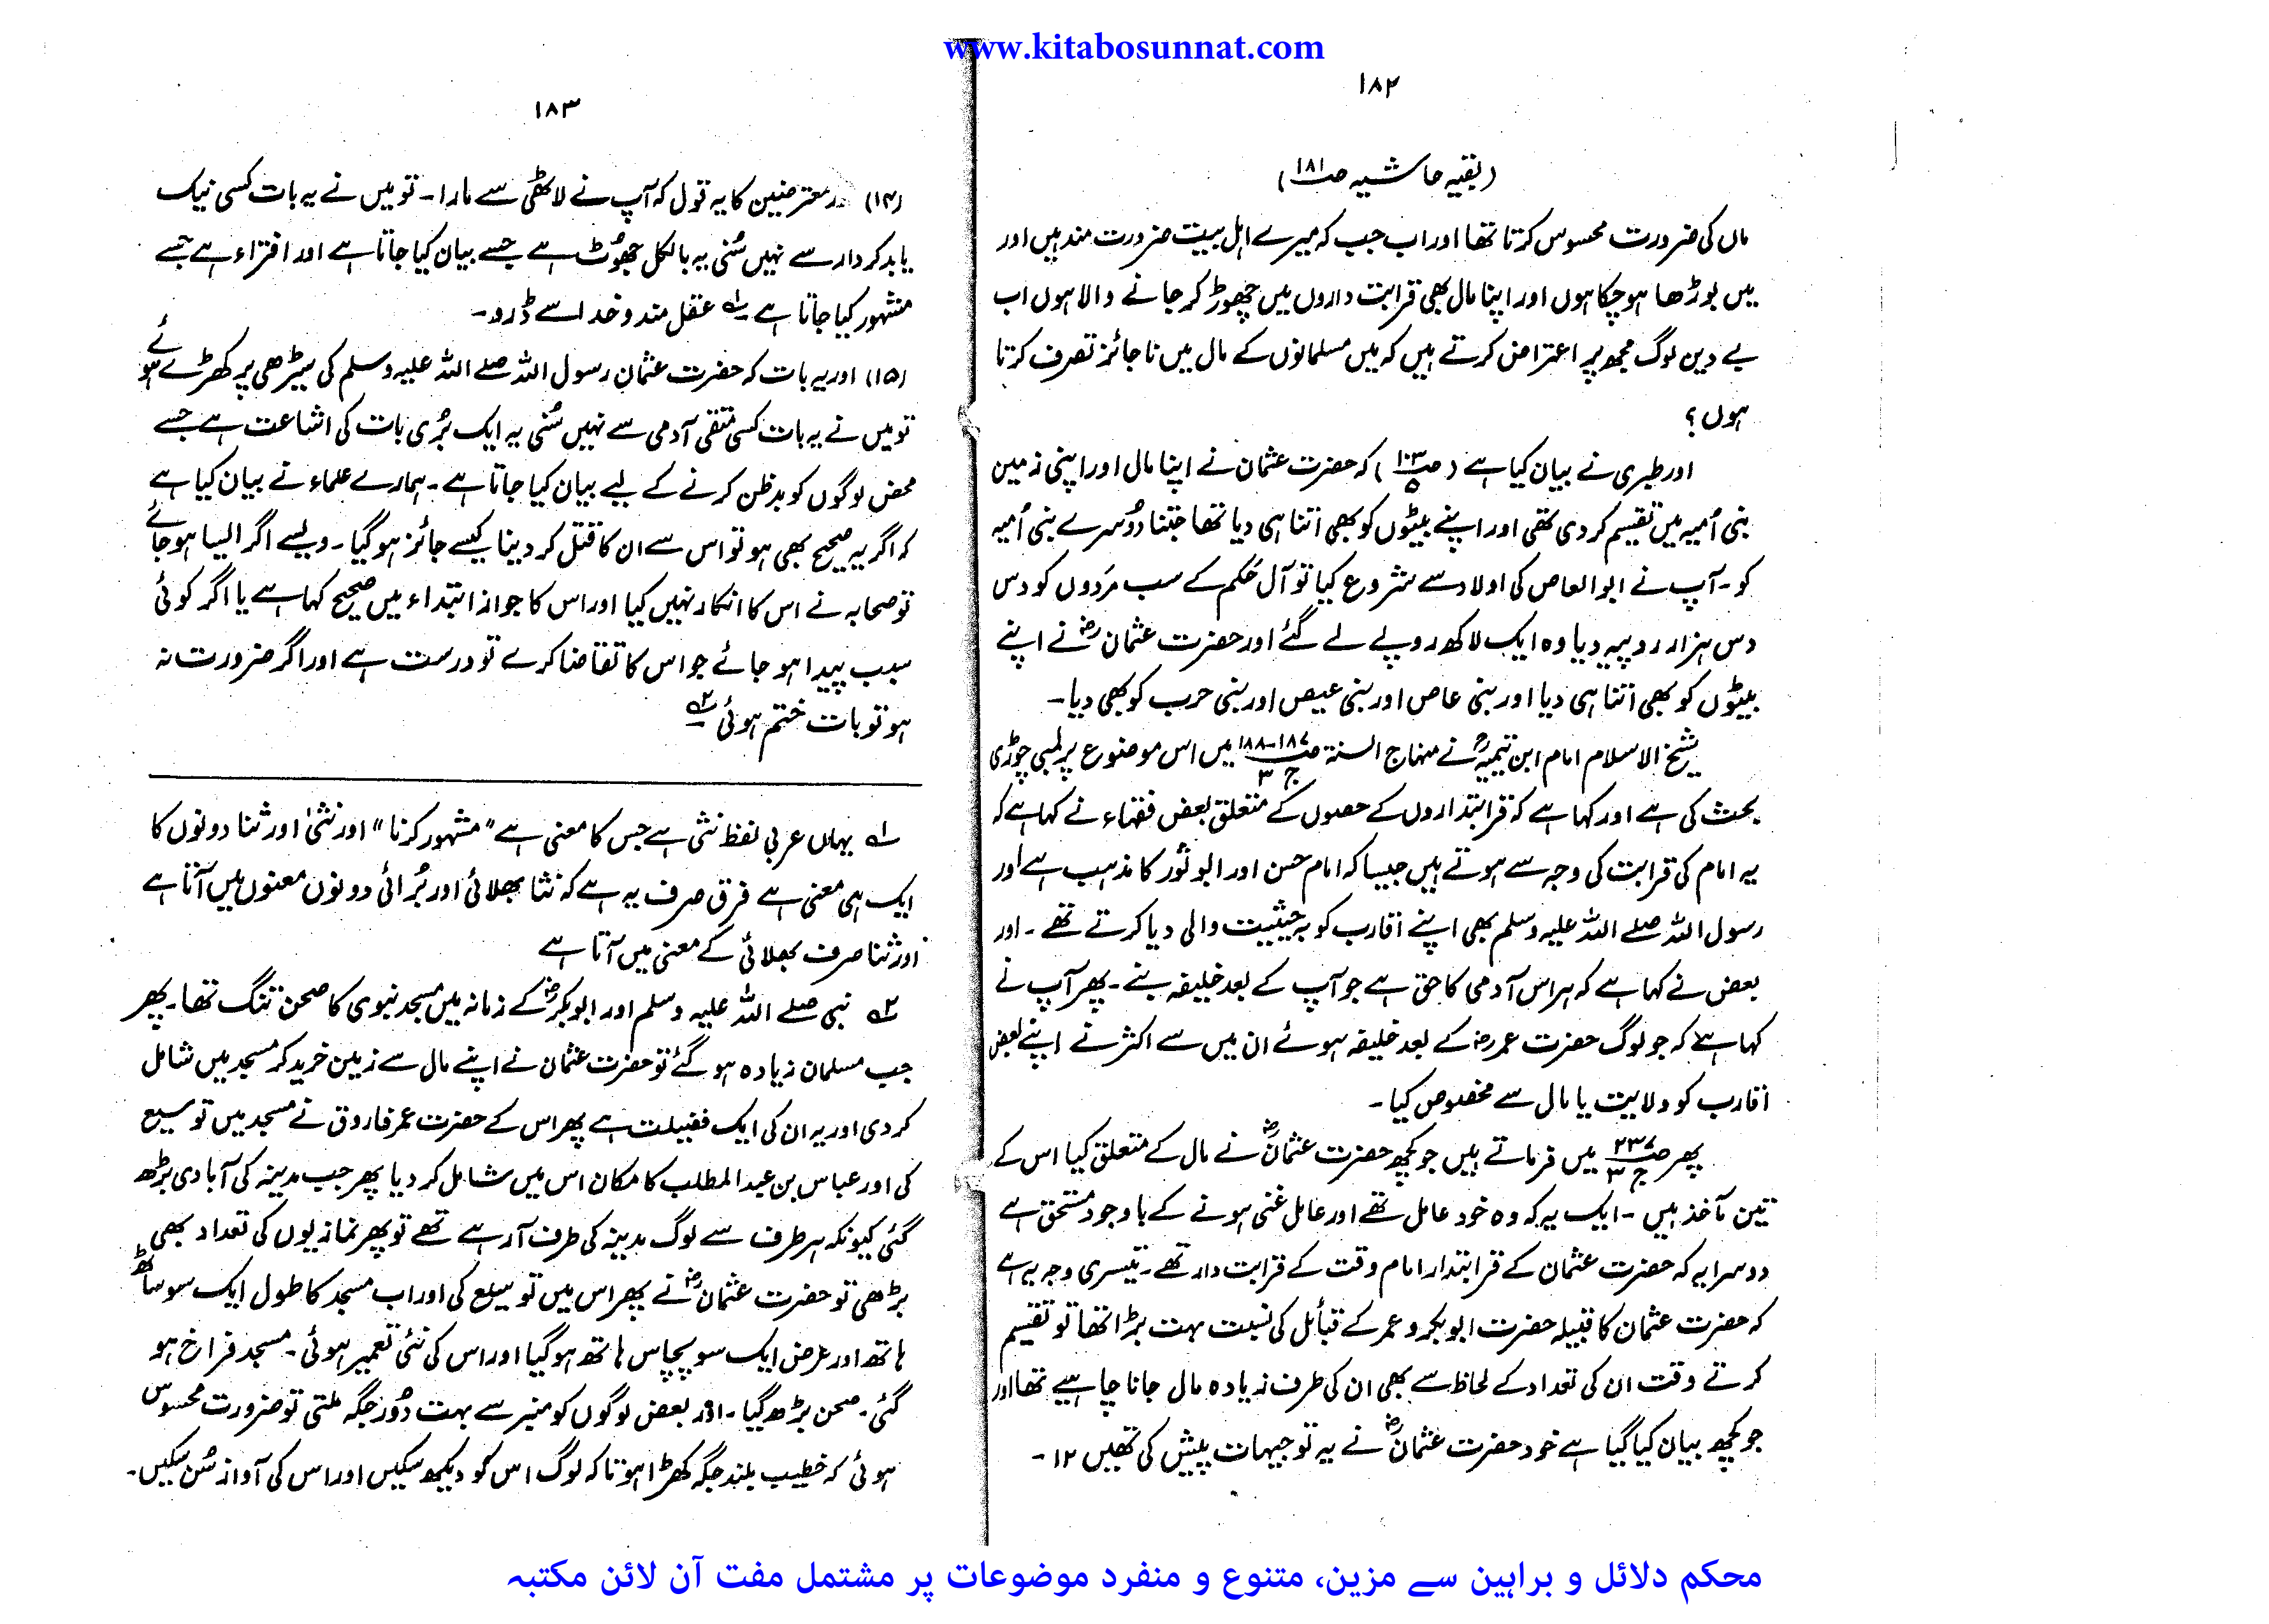 www.kitabosunnat.com
۱۸۲
(بقیہ حاشیہ صـ۱۸۱)
ماں کی ضرورت محسوس کرتا تھا اور اب جب کہ میرے اہل بیت ضرورت مند ہیں اور
میں بوڑھا ہو چکا ہوں اور اپنا مال بھی قرابت داروں میں چھوڑ کر جانے والا ہوں اب
بے دین لوگ مجھ پر اعتراض کرتے ہیں کہ میں مسلمانوں کے مال میں ناجائز تصرف کرتا
ہوں؟
اور طبری نے بیان کیا ہے (صـ۱۰۳/۵) کہ حضرت عثمان نے اپنا مال اور اپنی زمین
بنی اُمیہ میں تقسیم کر دی تھی اور اپنے بیٹوں کو بھی اتنا ہی دیا تھا جتنا دُوسرے بنی اُمیہ
کو۔ آپ نے ابو العاص کی اولاد سے شروع کیا تو آل حَکم کے سب مَردوں کو دس
دس ہزار روپیہ دیا وہ ایک لاکھ روپے لے گئے اور حضرت عثمانؓ نے اپنے
بیٹوں کو بھی اتنا ہی دیا اور بنی عاص اور بنی عیص اور بنی حرب کو بھی دیا۔
شیخ الاسلام امام ابن تیمیہؒ نے منہاج السنۃ صـ۱۸۷-۱۸۸ ج ۳ میں اس موضوع پر لمبی چوڑی
بحث کی ہے اور کہا ہے کہ قرابتداروں کے حصوں کے متعلق بعض فقہاء نے کہا ہے کہ
یہ امام کی قرابت کی وجہ سے ہوتے ہیں جیسا کہ امام حسن اور ابو ثَور کا مذہب ہے اور
رسول اللہ صلے اللہ علیہ وسلم بھی اپنے اقارب کو بہ حیثیت والی دیا کرتے تھے۔ اور
بعض نے کہا ہے کہ ہر اس آدمی کا حق ہے جو آپ کے بعد خلیفہ بنے۔ پھر آپ نے
کہا ہے کہ جو لوگ حضرت عمرؓ کے بعد خلیفہ ہوئے ان میں سے اکثر نے اپنے بعض
اقارب کو ولایت یا مال سے مخصوص کیا۔
پھر صـ۲۳۷ ج ۳ میں فرماتے ہیں جو کچھ حضرت عثمانؓ نے مال کے متعلق کیا اس کے
تین مآخذ ہیں۔ ایک یہ کہ وہ خود عامل تھے اور عامل غنی ہونے کے باوجود مستحق ہے
دوسرا یہ کہ حضرت عثمان کے قرابتدار امام وقت کے قرابت دار تھے۔ تیسری وجہ یہ ہے
کہ حضرت عثمان کا قبیلہ حضرت ابوبکر و عمر کے قبائل کی نسبت بہت بڑا تھا تو تقسیم
کرتے وقت ان کی تعداد کے لحاظ سے بھی ان کی طرف زیادہ مال جانا چاہیے تھا اور
جو کچھ بیان کیا گیا ہے خود حضرت عثمانؓ نے یہ توجیہات پیش کی تھیں ۱۲۔
۱۸۳
(۱۴) معترضین کا یہ قول کہ آپ نے لاٹھی سے مارا۔ تو میں نے یہ بات کسی نیک
یا بدکردار سے نہیں سُنی یہ بالکل جھوُٹ ہے جسے بیان کیا جاتا ہے اور افتراء ہے جسے
مشہور کیا جاتا ہے ۱؎ عقل مندو خدا سے ڈرو۔
(۱۵) اور یہ بات کہ حضرت عثمان رسول اللہ صلے اللہ علیہ وسلم کی سیڑھی پر کھڑے ہوئے
تو میں نے یہ بات کسی متقی آدمی سے نہیں سُنی یہ ایک بُری بات کی اشاعت ہے جسے
محض لوگوں کو بدظن کرنے کے لیے بیان کیا جاتا ہے۔ ہمارے علماء نے بیان کیا ہے
کہ اگر یہ صحیح بھی ہو تو اس سے ان کا قتل کر دینا کیسے جائز ہو گیا۔ ویسے اگر ایسا ہو جائے
تو صحابہ نے اس کا انکار نہیں کیا اور اس کا جواز ابتداء میں صحیح کہا ہے یا اگر کوئی
سبب پیدا ہو جائے جو اس کا تقاضا کرے تو درست ہے اور اگر ضرورت نہ
ہو تو بات ختم ہوئی ۲؎
۱؎ یہاں عربی لفظ نثی ہے جس کا معنی ہے "مشہور کرنا" اور نثیٰ اور ثنا دونوں کا
ایک ہی معنی ہے فرق صرف یہ ہے کہ نثا بھلائی اور بُرائی دونوں معنوں میں آتا ہے
اور ثنا صرف بھلائی کے معنی میں آتا ہے
۲؎ نبی صلے اللہ علیہ وسلم اور ابوبکرؓ کے زمانہ میں مسجد نبوی کا صحن تنگ تھا۔ پھر
جب مسلمان زیادہ ہو گئے تو حضرت عثمان نے اپنے مال سے زمین خرید کر مسجد میں شامل
کر دی اور یہ ان کی ایک فضیلت ہے پھر اس کے حضرت عمر فاروق نے مسجد میں توسیع
کی اور عباس بن عبد المطلب کا مکان اس میں شامل کر دیا پھر جب مدینہ کی آبادی بڑھ
گئی کیونکہ ہر طرف سے لوگ مدینہ کی طرف آرہے تھے تو پھر نمازیوں کی تعداد بھی
بڑھی تو حضرت عثمانؓ نے پھر اس میں توسیع کی اور اب مسجد کا طول ایک سو ساٹھ
ہاتھ اور عرض ایک سو پچاس ہاتھ ہو گیا اور اس کی نئی تعمیر ہوئی۔ مسجد فراخ ہو
گئی۔ صحن بڑھ گیا۔ اور بعض لوگوں کو منبر سے بہت دُور جگہ ملتی تو ضرورت محسوس
ہوئی کہ خطیب بلند جگہ کھڑا ہو تاکہ لوگ اس کو دیکھ سکیں اور اس کی آواز سُن سکیں۔
محکم دلائل و براہین سے مزین، متنوع و منفرد موضوعات پر مشتمل مفت آن لائن مکتبہ